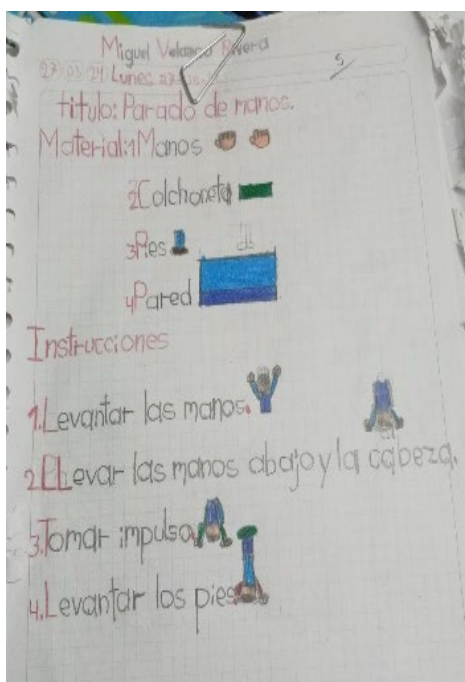 Miguel Velasco Rivera
27 05 24 Lunes
titulo: Parado de manos.
Material: 1 Manos
2 Colchoneta
3 Pies
4 Pared
Instrucciones
1. Levantar las manos.
2. LLevar las manos abajo y la cabeza.
3. Tomar impulso
4. Levantar los pies